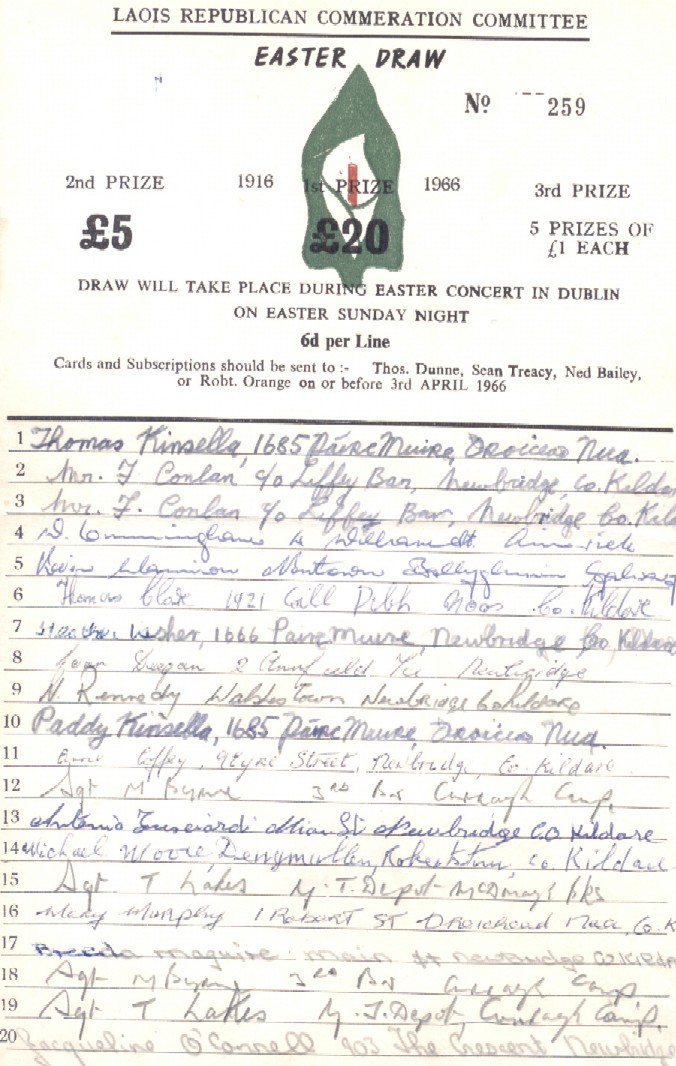 LAOIS REPUBLICAN COMMERATION COMMITTEE
EASTER DRAW
Nº 259
2nd PRIZE 1916 1st PRIZE 1966 3rd PRIZE
£5 £20 5 PRIZES OF
£1 EACH
DRAW WILL TAKE PLACE DURING EASTER CONCERT IN DUBLIN
ON EASTER SUNDAY NIGHT
6d per Line
Cards and Subscriptions should be sent to :- Thos. Dunne, Sean Treacy, Ned Bailey,
or Robt. Orange on or before 3rd APRIL 1966
1 Thomas Kinsella, 1685 Páirc Muire, Droicead Nua.
2 Mr. F Conlan c/o Liffey Bar, Newbridge, Co. Kildare
3 Mr. F. Conlan c/o Liffey Bar, Newbridge Co. Kild
4 Cunningham William St.
5 Kevin Galway
6 Thomas 1921 Naas Co. Kildare
7 1666 Páirc Muire, Newbridge Co. Kildare
8 Deegan 2 Newbridge
9 N. Kennedy Walshestown Newbridge Co Kildare
10 Paddy Kinsella, 1685 Páirc Muire, Droicead Nua.
11 Coffey, 9 Eyre Street, Newbridge, Co. Kildare.
12 Sgt M Byrne 3rd Bn Curragh Camp.
13 Antonio Main St Newbridge C.O Kildare
14 Michael Moore, Derrymullen, Robertstown, Co. Kildare
15 Sgt T Lakes M.T. Depot McDonagh Bks
16 Mary Murphy 1 Robert ST Droichead Nua, Co. K
17 Breda Maguire main st newbridge Co. Kildare
18 Sgt M Byrne 3rd Bn Curragh Camp.
19 Sgt T Lakes M.T. Depot, Curragh Camp.
20 Jacqueline O'Connell 903 The Crescent Newbridge